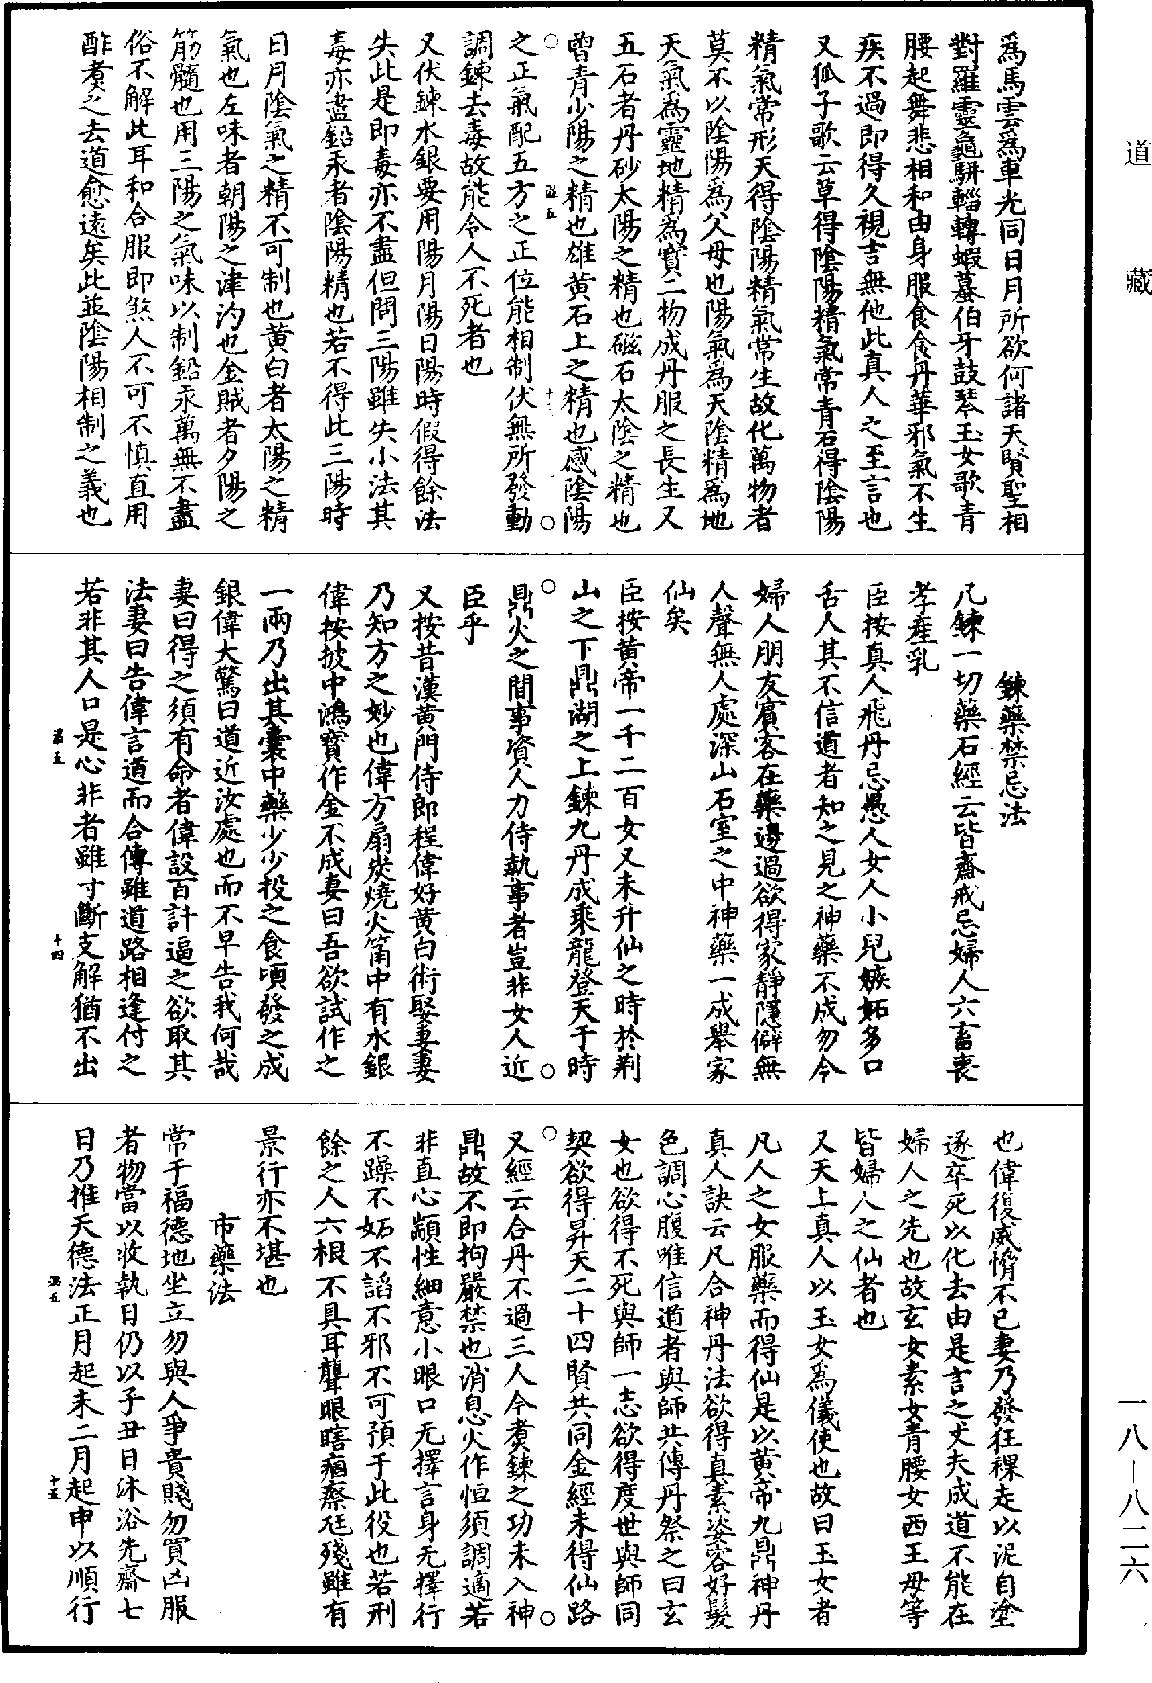 道藏
一八—八二六
為馬雲為車光同日月所欲何諸天賢聖相
對羅靈龜駢輜轉蝦蟇伯牙鼓琴玉女歌青
腰起舞悲相和由身服食食丹華邪氣不生
疾不過即得久視吉無他此真人之至言也
又狐子歌云草得陰陽精氣常青石得陰陽
精氣常形天得陰陽精氣常生故化萬物者
莫不以陰陽為父母也陽氣為天陰精為地
天氣為靈地精為寶二物成丹服之長生又
五石者丹砂太陽之精也磁石太陰之精也
曾青少陽之精也雄黃石上之精也感陰陽
之正氣配五方之正位能相制伏無所發動
調鍊去毒故能令人不死者也
又伏鍊水銀要用陽月陽日陽時假得餘法
失此是即毒亦不盡但問三陽雖失小法其
毒亦盡鉛汞者陰陽精也若不得此三陽時
日月陰氣之精不可制也黃白者太陽之精
氣也左味者朝陽之津汋也金賊者夕陽之
筋髓也用三陽之氣味以制鉛汞萬無不盡
俗不解此耳和合服即煞人不可不慎直用
酢煮之去道愈遠矣此並陰陽相制之義也
鍊藥禁忌法
凡鍊一切藥石經云皆齋戒忌婦人六畜喪
孝產乳
臣按真人飛丹忌愚人女人小兒嫉妬多口
舌人其不信道者知之見之神藥不成勿令
婦人朋友賓客在藥邊過欲得家靜隱僻無
人聲無人處深山石室之中神藥一成舉家
仙矣
臣按黃帝一千二百女又未升仙之時於荆
山之下鼎湖之上鍊九丹成乘龍登天于時
鼎火之間事資人力侍執事者豈非女人近
臣乎
又按昔漢黃門侍郎程偉好黃白術娶妻妻
乃知方之妙也偉方扇炭燒火筩中有水銀
偉按披中鴻寶作金不成妻曰吾欲試作之
一兩乃出其囊中藥少少投之食頃發之成
銀偉大驚曰道近汝處也而不早告我何哉
妻曰得之須有命者偉設百計逼之欲取其
法妻曰告偉言道而合傳雖道路相逢付之
若非其人口是心非者雖寸斷支解猶不出
也偉復威脅不已妻乃發狂裸走以泥自塗
逐卒死以化去由是言之丈夫成道不能在
婦人之先也故玄女素女青腰女西王母等
皆婦人之仙者也
又天上真人以玉女為儀使也故曰玉女者
凡人之女服藥而得仙是以黃帝九鼎神丹
真人訣云凡合神丹法欲得真素姿容好髮
色調心腹唯信道者與師共傳丹祭之曰玄
女也欲得不死與師一志欲得度世與師同
契欲得昇天二十四賢共同金經未得仙路
又經云合丹不過三人今煑鍊之功未入神
鼎故不即拘嚴禁也消息火作恒須調適若
非直心顓性細意小眼口无擇言身无擇行
不躁不妬不謟不邪不可預于此役也若刑
餘之人六根不具耳聾眼瞎痼瘵尫殘雖有
景行亦不堪也
市藥法
常于福德地坐立勿與人爭貴賤勿買凶服
者物當以收執日仍以子丑日沐浴先齋七
日乃推天德法正月起未二月起申以順行